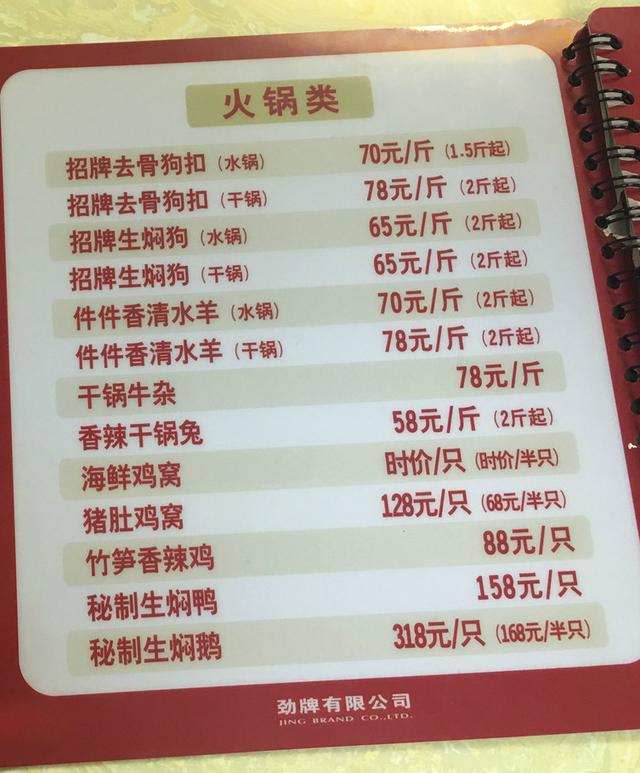 火锅类
招牌去骨狗扣（水锅） 70元/斤（1.5斤起）
招牌去骨狗扣（干锅） 78元/斤（2斤起）
招牌生焖狗（水锅） 65元/斤（2斤起）
招牌生焖狗（干锅） 65元/斤（2斤起）
件件香清水羊（水锅） 70元/斤（2斤起）
件件香清水羊（干锅） 78元/斤（2斤起）
干锅牛杂 78元/斤
香辣干锅兔 58元/斤（2斤起）
海鲜鸡窝 时价/只（时价/半只）
猪肚鸡窝 128元/只（68元/半只）
竹笋香辣鸡 88元/只
秘制生焖鸭 158元/只
秘制生焖鹅 318元/只（168元/半只）
劲牌有限公司
JING BRAND CO.,LTD.